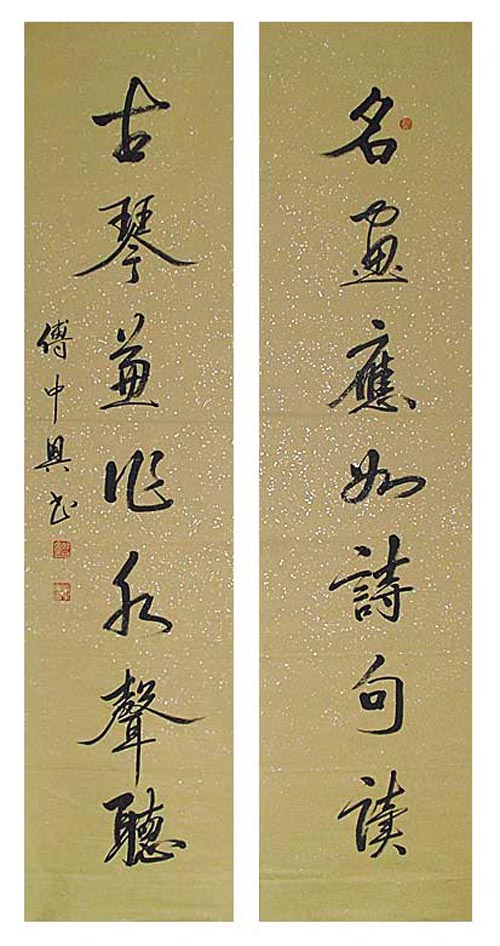 名畫應如詩句讀
古琴兼作水聲聽
傅中興书